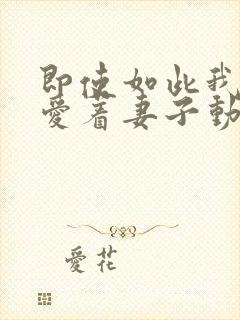 即使如此我
愛着妻子動
愛花